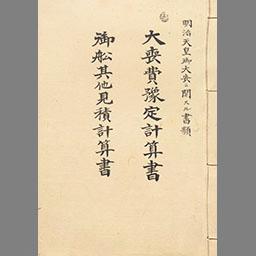 明治天皇御大喪ニ関スル書類
大喪費豫定計算書
御舩其他見積計算書